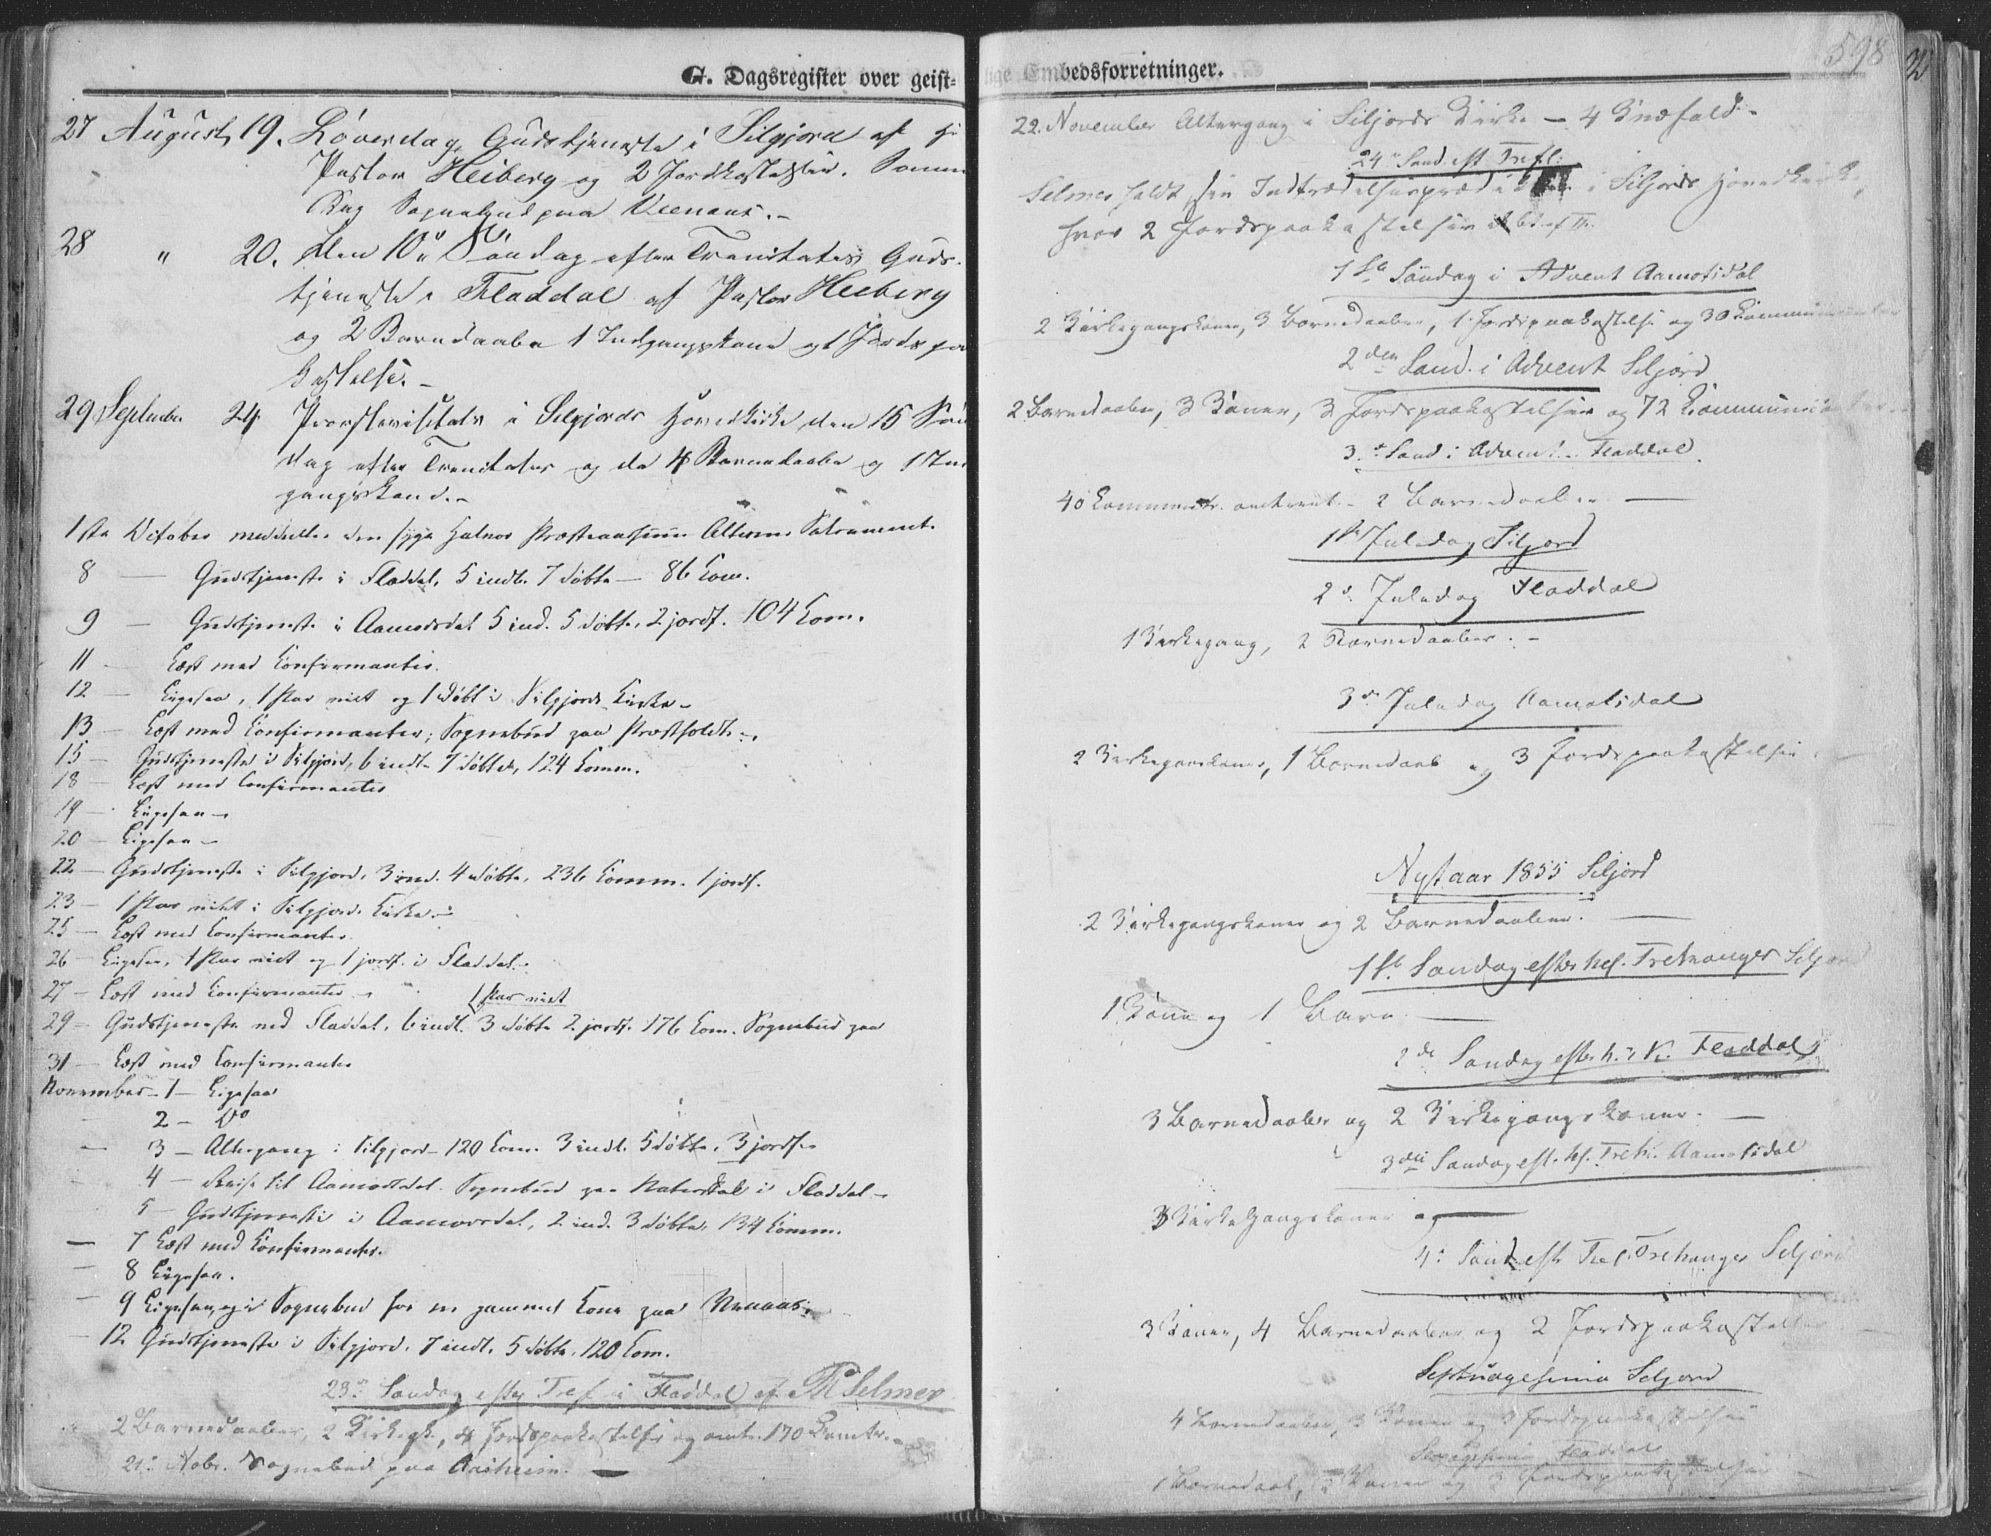 G. Dagsregister over geist-
27 August 19. Löverdag Gudstjeneste i Silgjord af
Pastor Heiberg og 2 Jordkastelser. Samme
Dag Sognebud paa
28 " 20. Den 10de Söndag efter Trenitatis Guds-
tjeneste i Fladdal af Pastor Heiberg
og 2 Barnedaabe 1 Indgangskone og 1 Jords paa
kastelse. -
29 September 24 Provstevisitats i Silgjords Hovedkirke den 15 Sön
dag efter Trenitatis og da 4 Barnedaabe og 1 Ind
gangskone. -
1ste October meddelte den syge Halvor Alterens Sakrament.
8 — Gudstjeneste i Fladdal, 5 indl. 7 döbte — 86 Com.
9 — Gudstjeneste i Aamodsdal 5 ind. 5 döbte, 2 jordf. 104 Com.
11 — Læst med Confirmanter.
12 — Ligesaa, 1 Par viet og 1 döbt i Silgjords Kirke -
13 — Læst med Confirmanter; Sognebud paa
15 — Gudstjeneste i Silgjord, 6 indl. 7 döbte, 124 Comm.
18 — Læst med Confirmanter
19 — Ligesaa -
20 — Ligesaa -
22 — Gudstjeneste i Silgjord, 3 ind. 4 döbte, 236 Comm. 1 jordf.
23 — 1 Par viet i Silgjords Kirke. -
25 — Læst med Confirmanter.
26 — Ligesaa, 1 Par viet og 1 jordf. i Fladdal. -
27 — Læst med Confirmanter -
1 Par viet
29 — Gudstjeneste ved Fladdal, 6 indl. 3 döbte 2 jordf. 176 Com. Sognebud paa
31 — Læst med Confirmanter
November - 1 — Ligesaa
2 — Do
3 — Altergang i Silgjord - 120 Com. 3 indl. 5 döbte, 3 jordf.
4 — Reise til Aamodsdal. Sognebud paa i Fladdal -
5 — Gudstjeneste i Aamodsdal, 2 ind. 3 döbte, 134 Comm.
— 7 Læst med Confirmanter.
— 8 Ligesaa.
— 9 Ligesaa, og i Sognebud for en gammel Kone paa
— 12 Gudstjeneste i Silgjord. 7 indl. 5 döbte, 120 Com.
23de Søndag efter Tref. i Fladdal af Selmer
2 Barnedaaber, 2 Kirkegk, 4 Jordspaakastelser og omtr. 170
21. Novbr. Sognebud paa
lige Embedsforretninger.
598
22. November Altergang i Siljords Kirke — 4 Knæfald -
24de Sønd. eft Tref.
Selmer holdt sin Indtrædelsespræd i Siljords Hovedkirke,
hvor 2 Jordspaakastelser
1ste Søndag i Advent Aamotsdal
2 Kirkegangskoner, 3 Barnedaaber, 1 Jordspaakastelse og 30 Communicanter
2den Sønd. i Advent Siljord
2 Barnedaaber, 3 Koner, 3 Jordspaakastelser og 72 Communicanter
3de Sønd i Advent - Fladdal
40 omtrent - 2 Barnedaaber —
1ste Juledag Siljord
2d. Juledag Fladdal
1 Kirkegang, 2 Barnedaaber. -
3de Juledag Aamotsdal
2 Kirkegangskoner, 1 Barnedaab og 3 Jordspaakastelser
Nytaar 1855 Siljord
2 Kirkegangskoner og 2 Barnedaaber. —
1ste Søndag efter hel. Trekonger Siljord
1 Kone og 1 Barn —
2de Søndag efter h. 3 K. Fladdal
3 Barnedaaber og 2 Kirkegangskoner. —
3die Søndag eft. hl. Trek. Aamotsdal
3 Kirkegangskoner og —
4. Sønd eft Hel. Trekonger Siljord
3 Koner, 4 Barnedaaber og 2 Jordspaakastelser
Septuagesima Siljord
4 Barnedaaber, 3 Koner og 3 Jordspaakastelser
Sexagesima Fladdal
1 Barnedaab, 2 Koner og 3 Jordspaakastelser